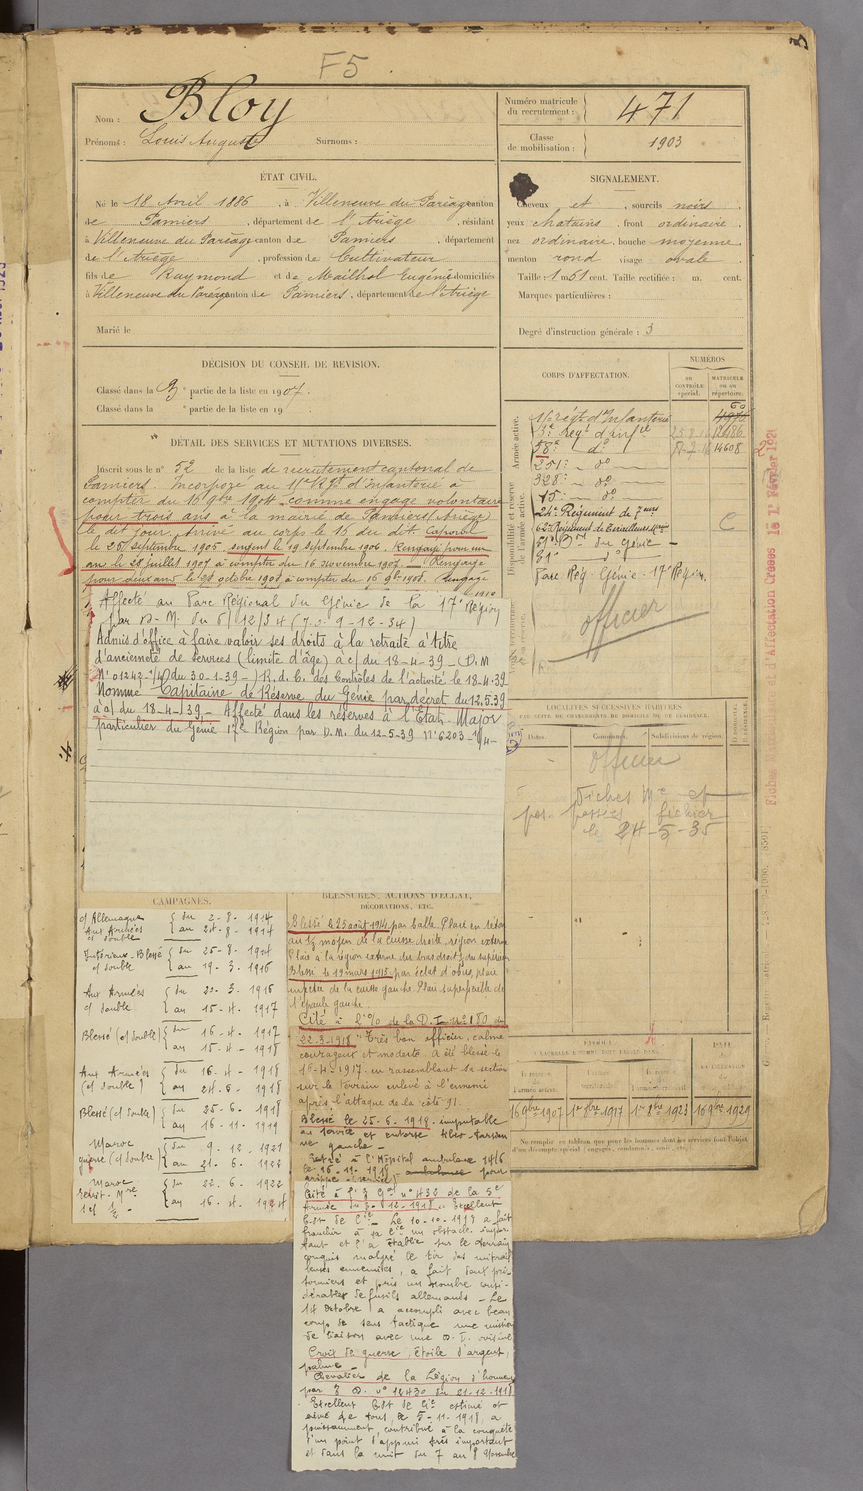 F5
3
Nom : Bloy
Prénoms : Louis Auguste Surnoms :
Numéro matricule du recrutement : 471
Classe de mobilisation : 1903
ÉTAT CIVIL.
Né le 18 Avril 1886, à Villeneuve du Paréage canton
de Pamiers, département de l'Ariège, résidant
à Villeneuve du Paréage canton de Pamiers, département
de l'Ariège, profession de Cultivateur
fils de Raymond et de Mailhol Eugénie domiciliés
à Villeneuve du Paréage canton de Pamiers, département de l'Ariège
Marié le
SIGNALEMENT.
Cheveux et, sourcils noirs,
yeux chatains, front ordinaire,
nez ordinaire, bouche moyenne,
menton rond visage ovale.
Taille : 1 m 61 cent. Taille rectifiée : m. cent.
Marques particulières :
Degré d'instruction générale : 3
DÉCISION DU CONSEIL DE REVISION.
Classé dans la 3e partie de la liste en 1907.
Classé dans la e partie de la liste en 19
DÉTAIL DES SERVICES ET MUTATIONS DIVERSES.
Inscrit sous le n° 52 de la liste de recrutement cantonal de
Pamiers. Incorporé au 11e Rgt d'Infanterie à
compter du 15 9bre 1904 comme engagé volontaire
pour trois ans à la mairie de Pamiers (Ariège)
le dit jour. Arrivé au corps le 16 du dit. Caporal
le 26 septembre 1905, sergent le 19 septembre 1906. Rengagé pour un
an le 28 juillet 1907 à compter du 16 novembre 1907. Rengagé
pour deux ans le 28 octobre 1908 à compter du 16 9bre 1908. Rengagé
Affecté au Parc Régional du Génie de la 17e Région
par D.M. du 6/12/34 (J.O. 9-12-34)
Admis d'office à faire valoir ses droits à la retraite à titre
d'ancienneté de services (limite d'âge) à c/ du 18-4-39 - (D.M
N° 01242-1/4 du 30-1-39 -) R. d. C. des Contrôles de l'activité le 18-4-39
Nommé Capitaine de Réserve du Génie par décret du 12.5.39
à c/ du 18-4-39 - Affecté dans les réserves à l'Etat-Major
particulier du Génie 17e Région par D.M. du 12-5-39 N° 6203-1/4-
CORPS D'AFFECTATION.
NUMÉROS
au contrôle spécial.
matricule ou au répertoire.
Armée active.
Disponibilité et réserve de l'armée active.
11e régt d'Infanterie
3e Régt d'infie
58e do 14608
251e do
328e do
15e do
24e Régiment de
62e Régiment de Tirailleurs
31e Bon du Génie
31e do
Parc Rég. Génie - 17e Région.
C
officier
LOCALITÉS SUCCESSIVES HABITÉES
PAR SUITE DE CHANGEMENTS DE DOMICILE OU DE RÉSIDENCE.
Dates. Communes. Subdivisions de région.
officier
Fiches Mle et
passées fichier
le 24-5-35
16 9bre 1907 1er 8bre 1917 1er 8bre 1923 16 9bre 1929
CAMPAGNES.
c/ Allemagne
Aux Armées
c/ double
du 2-8-1914
au 24-8-1914
Intérieur-Blessé
c/ double
du 25-8-1914
au 19-3-1916
Aux Armées
c/ double
du 20-3-1916
au 15-4-1917
Blessé (c/ double)
du 16-4-1917
au 15-4-1918
Aux Armées
(c/ double)
du 16-4-1918
au 24-6-1918
Blessé (c/ double)
du 25-6-1918
au 16-11-1919
Maroc
guerre (c/ double)
du 9-12-1921
au 21-6-1922
Maroc
du 22-6-1922
au 16-4-1924
BLESSURES, ACTIONS D'ÉCLAT,
DÉCORATIONS, ETC.
Blessé le 25 août 1914 par balle. Plaie en séton
au 1/3 moyen de la cuisse droite, région externe
Plaie à la région externe du bras droit
Blessé le 19 mars 1915 par éclat d'obus, plaie
de la cuisse gauche. Plaie superficielle de
l'épaule gauche.
Cité à l'O/ de la D.I. n° 180 du
22-3-1918 "Très bon officier, calme
courageux et modeste. A été blessé le
16-4-1917 en rassemblant sa section
sur le terrain enlevé à l'ennemi
après l'attaque de la côte 91.
Blessé le 25-6-1918 imputable
au service et entorse tibio-tarsienne
gauche -
Entré à l'Hôpital ambulance 1416
le 16-11-1918 pour
grippe (service)
Cité à l'O Gal n° 432 de la 5e
Armée du 3-12-1918. Excellent
Cdt de Cie - Le 10-10-1918 a fait
franchir à sa Cie un obstacle impor
tant et l'a établie sur le terrain
conquis malgré le tir des mitrail
leuses ennemies, a fait huit pri
sonniers et pris un nombre consi-
dérable de fusils allemands - Le
14 octobre a accompli avec beau
coup de sens tactique une mission
de liaison avec une D.I. voisine
Croix de guerre, étoile d'argent,
palme -
Chevalier de la Légion d'honneur
par O D. n° 12430 du 21-12-1918
Excellent Cdt de Cie estimé et
aimé de tous, le 5-11-1918, a
puissamment contribué à la conquête
d'un point d'appui très important
et dans la nuit du 7 au 8 Novembre